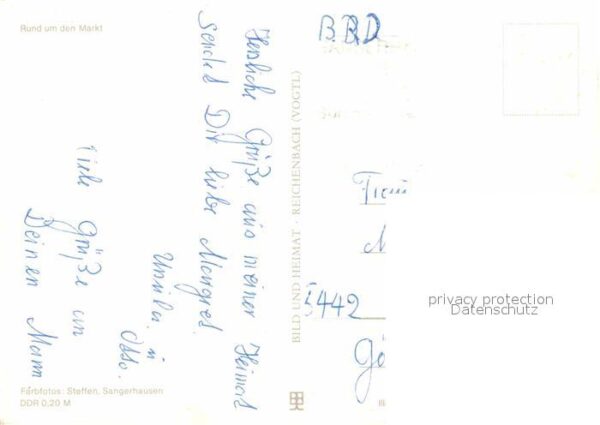 Rund um den Markt
Herzliche Grüße aus meiner Heimat
sendet Dir liebe
Ursula
Viele Grüße an
Deinen Mann
Farbfotos: Steffen, Sangerhausen
DDR 0,20 M
BILD UND HEIMAT · REICHENBACH (VOGTL)
BRD
5442
privacy protection
Datenschutz